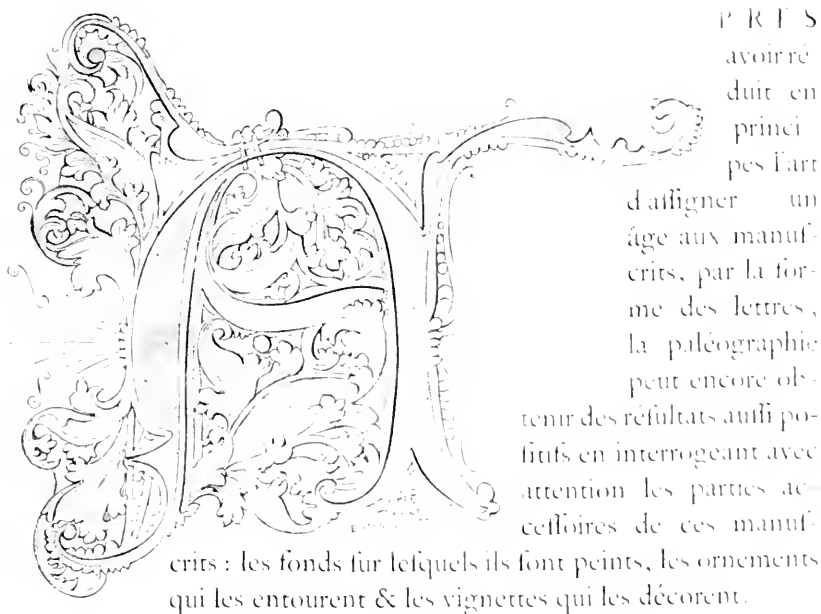 APRES
avoir ré
duit en
princi
pes l'art
d'aſſigner un
âge aux manuſ-
crits, par la for-
me des lettres,
la paléographie
peut encore ob-
tenir des réſultats auſſi po-
ſitifs en interrogeant avec
attention les parties ac-
ceſſoires de ces manuſ-
crits : les fonds ſur leſquels ils ſont peints, les ornements
qui les entourent & les vignettes qui les décorent.